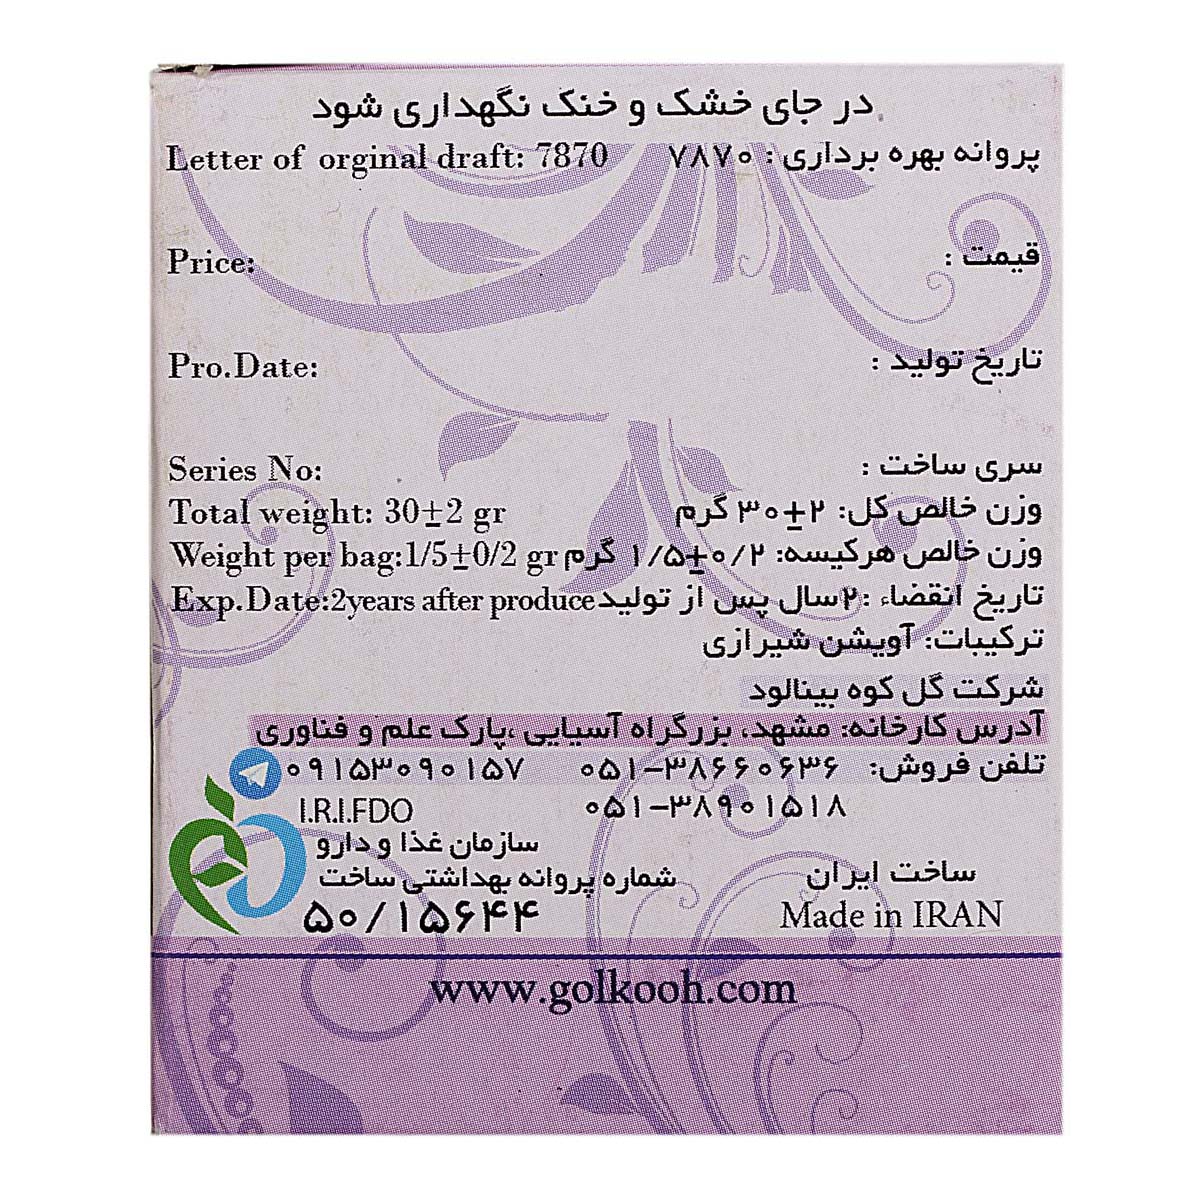 در جای خشک و خنک نگهداری شود.
Letter of orginal draft: 7870 پروانه بهره برداری : ۷۸۷۰
Price: قیمت :
Pro.Date: تاریخ تولید :
Series No: سری ساخت :
Total weight: 30±2 gr وزن خالص کل: ۳۰±۲ گرم
Weight per bag:1/5±0/2 gr وزن خالص هرکیسه: ۱/۵±۰/۲ گرم
Exp.Date:2years after produce تاریخ انقضاء :۲سال پس از تولید
ترکیبات: آویشن شیرازی
شرکت گل کوه بینالود
آدرس کارخانه: مشهد، بزرگراه آسیایی ،پارک علم و فناوری
تلفن فروش: ۰۵۱-۳۸۶۶۰۶۳۶ ۰۹۱۵۳۰۹۰۱۵۷
۰۵۱-۳۸۹۰۱۵۱۸
I.R.I.FDO
سازمان غذا و دارو
شماره پروانه بهداشتی ساخت
۵۰/۱۵۶۴۴
ساخت ایران
Made in IRAN
www.golkooh.com